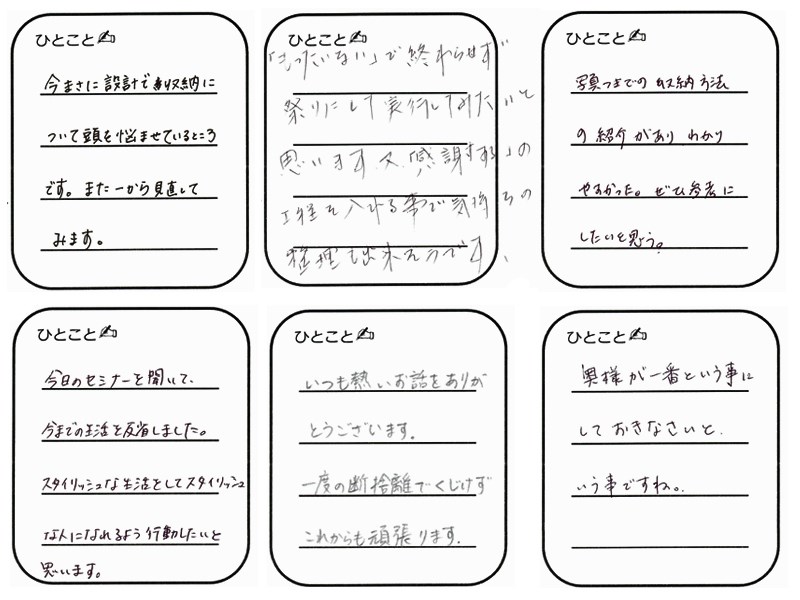 ひとこと
今まさに設計で収納に
ついて頭を悩ませているところ
です。また一から見直して
みます。
ひとこと
「もったいない」で終わらせず
祭りにして実行してみたいと
思います。又、感謝する」の
工程を入れる事で気持ちの
整理も出来そうです。
ひとこと
写真つきでの収納方法
の紹介があり わかり
やすかった。ぜひ参考に
したいと思う。
ひとこと
今日のセミナーを聞いて、
今までの生活を反省しました。
スタイリッシュな生活をしてスタイリッシュ
な人になれるよう行動したいと
思います。
ひとこと
いつも熱いお話をありが
とうございます。
一度の断捨離でくじけず
これからも頑張ります。
ひとこと
奥様が一番という事に
しておきなさいと、
いう事ですね。